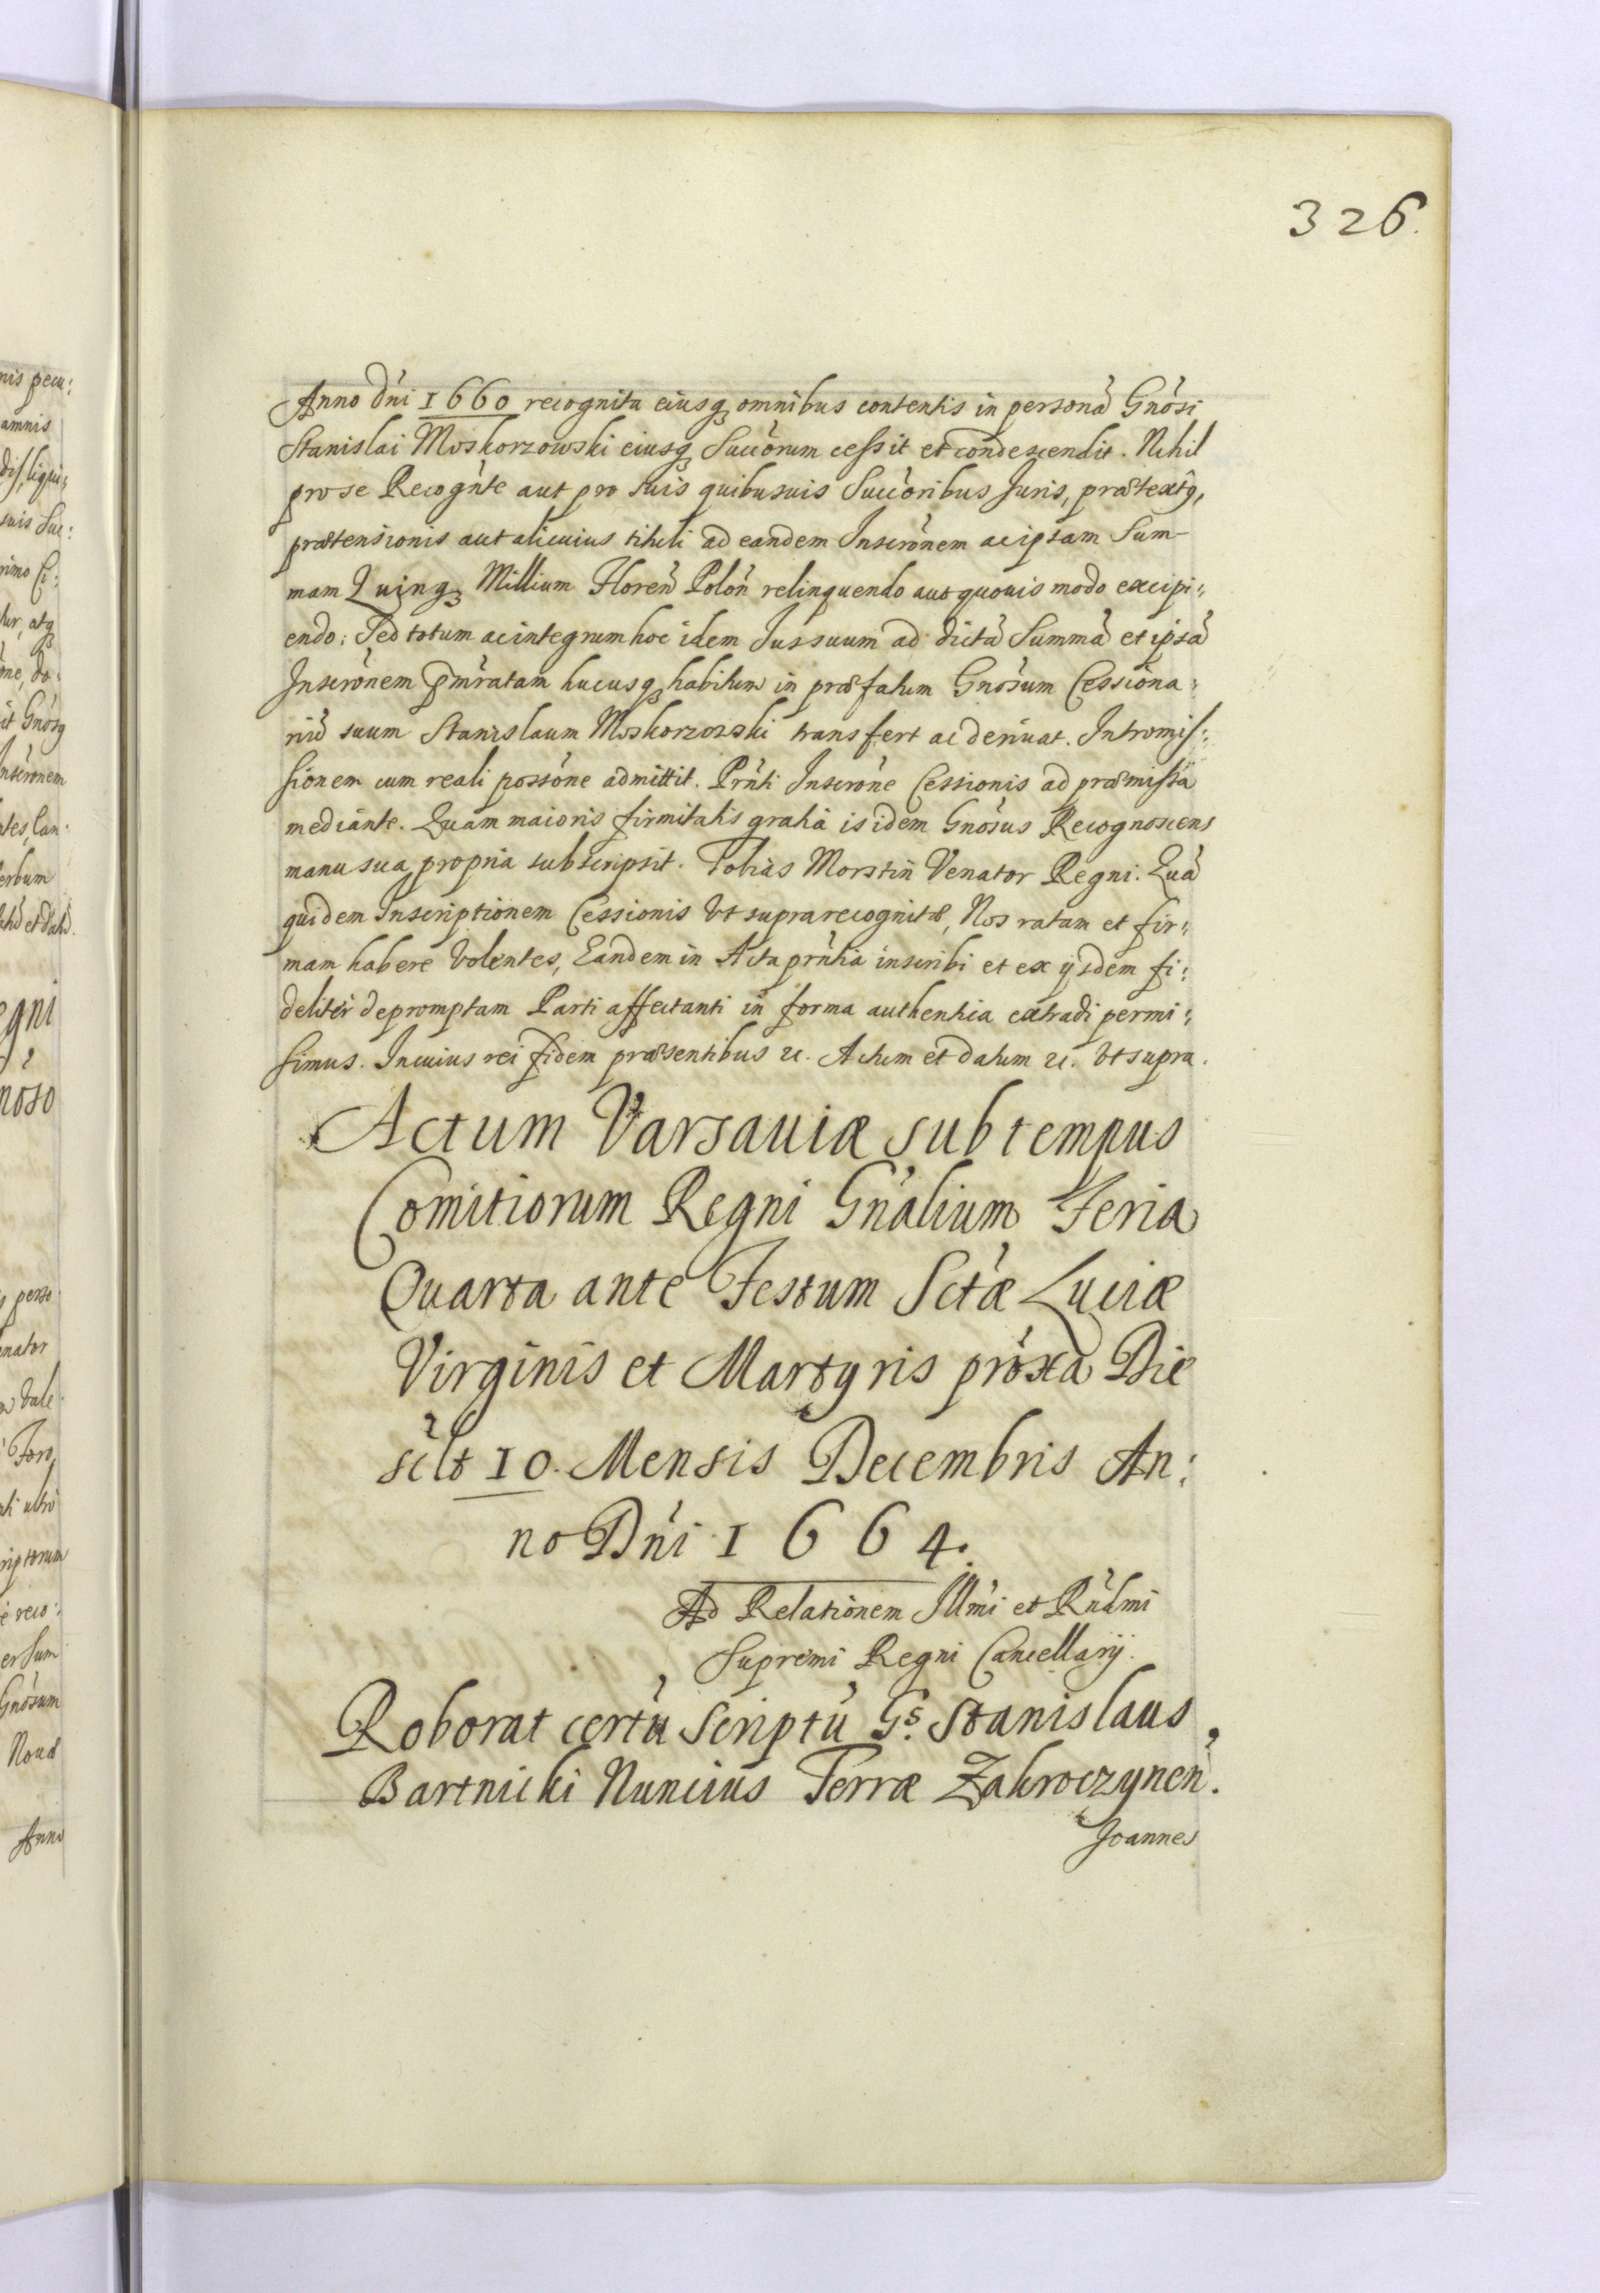 326.
Anno Dni 1660 recognita eiusq₃ omnibus contentis in personã Gnosi
Stanislai Moskorzowski eiusq₃ Succorum cessit et condescendit. Nihil
pro se Recognte aut pro suis quibusuis Succoribus Juris, prætextq,
prætensionis aut alicuius tituli ad eandem Inscronem ac ipsam Sum-
mam Quinq₃ Millium Floren Polon relinquendo aut quouis modo excipi:
endo: Sed totum ac integrum hoc idem Jus suum ad dictã Summã et ipsã
Inscronem pmratam hucusq₃ habitum in præfatum Gnosum Cessiona:
riũ suum Stanislaum Moskorzowski transfert ac deriuat. Intromis:
sionem cum reali possone admittit. Prnti Inscrone Cessionis ad præmissa
mediante. Quam maioris firmitatis gratia is idem Gnosus Recognoscens
manu sua propria subscripsit. Tobias Morstin Venator Regni. Quã
quidem Inscriptionem Cessionis Vt supra recognitæ, Nos ratam et fir:
mam habere Volentes, Eandem in Acta prntia inscribi et ex ijsdem fi:
deliter depromptam Parti affectanti in forma authentica extradi permi:
simus. In cuius rei fidem præsentibus etc. Actum et datum etc. Vt supra.
Actum Varsauiæ sub tempus
Comitiorum Regni Gnalium Feria
Quarta ante Festum Sctæ Luciæ
Virginis et Martyris proxa Die
scilt 10. Mensis Decembris An:
no Dni 1664.
Ad Relationem Illmi et Rndmi
Supremi Regni Cancellarij.
Roborat certũ Scriptũ Gs. Stanislaus
Bartnicki Nuncius Terræ Zakroczynen.
Joannes